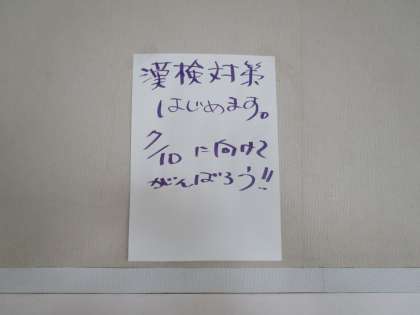 漢検対策
はじめます。
7/10 に向けて
がんばろう!!